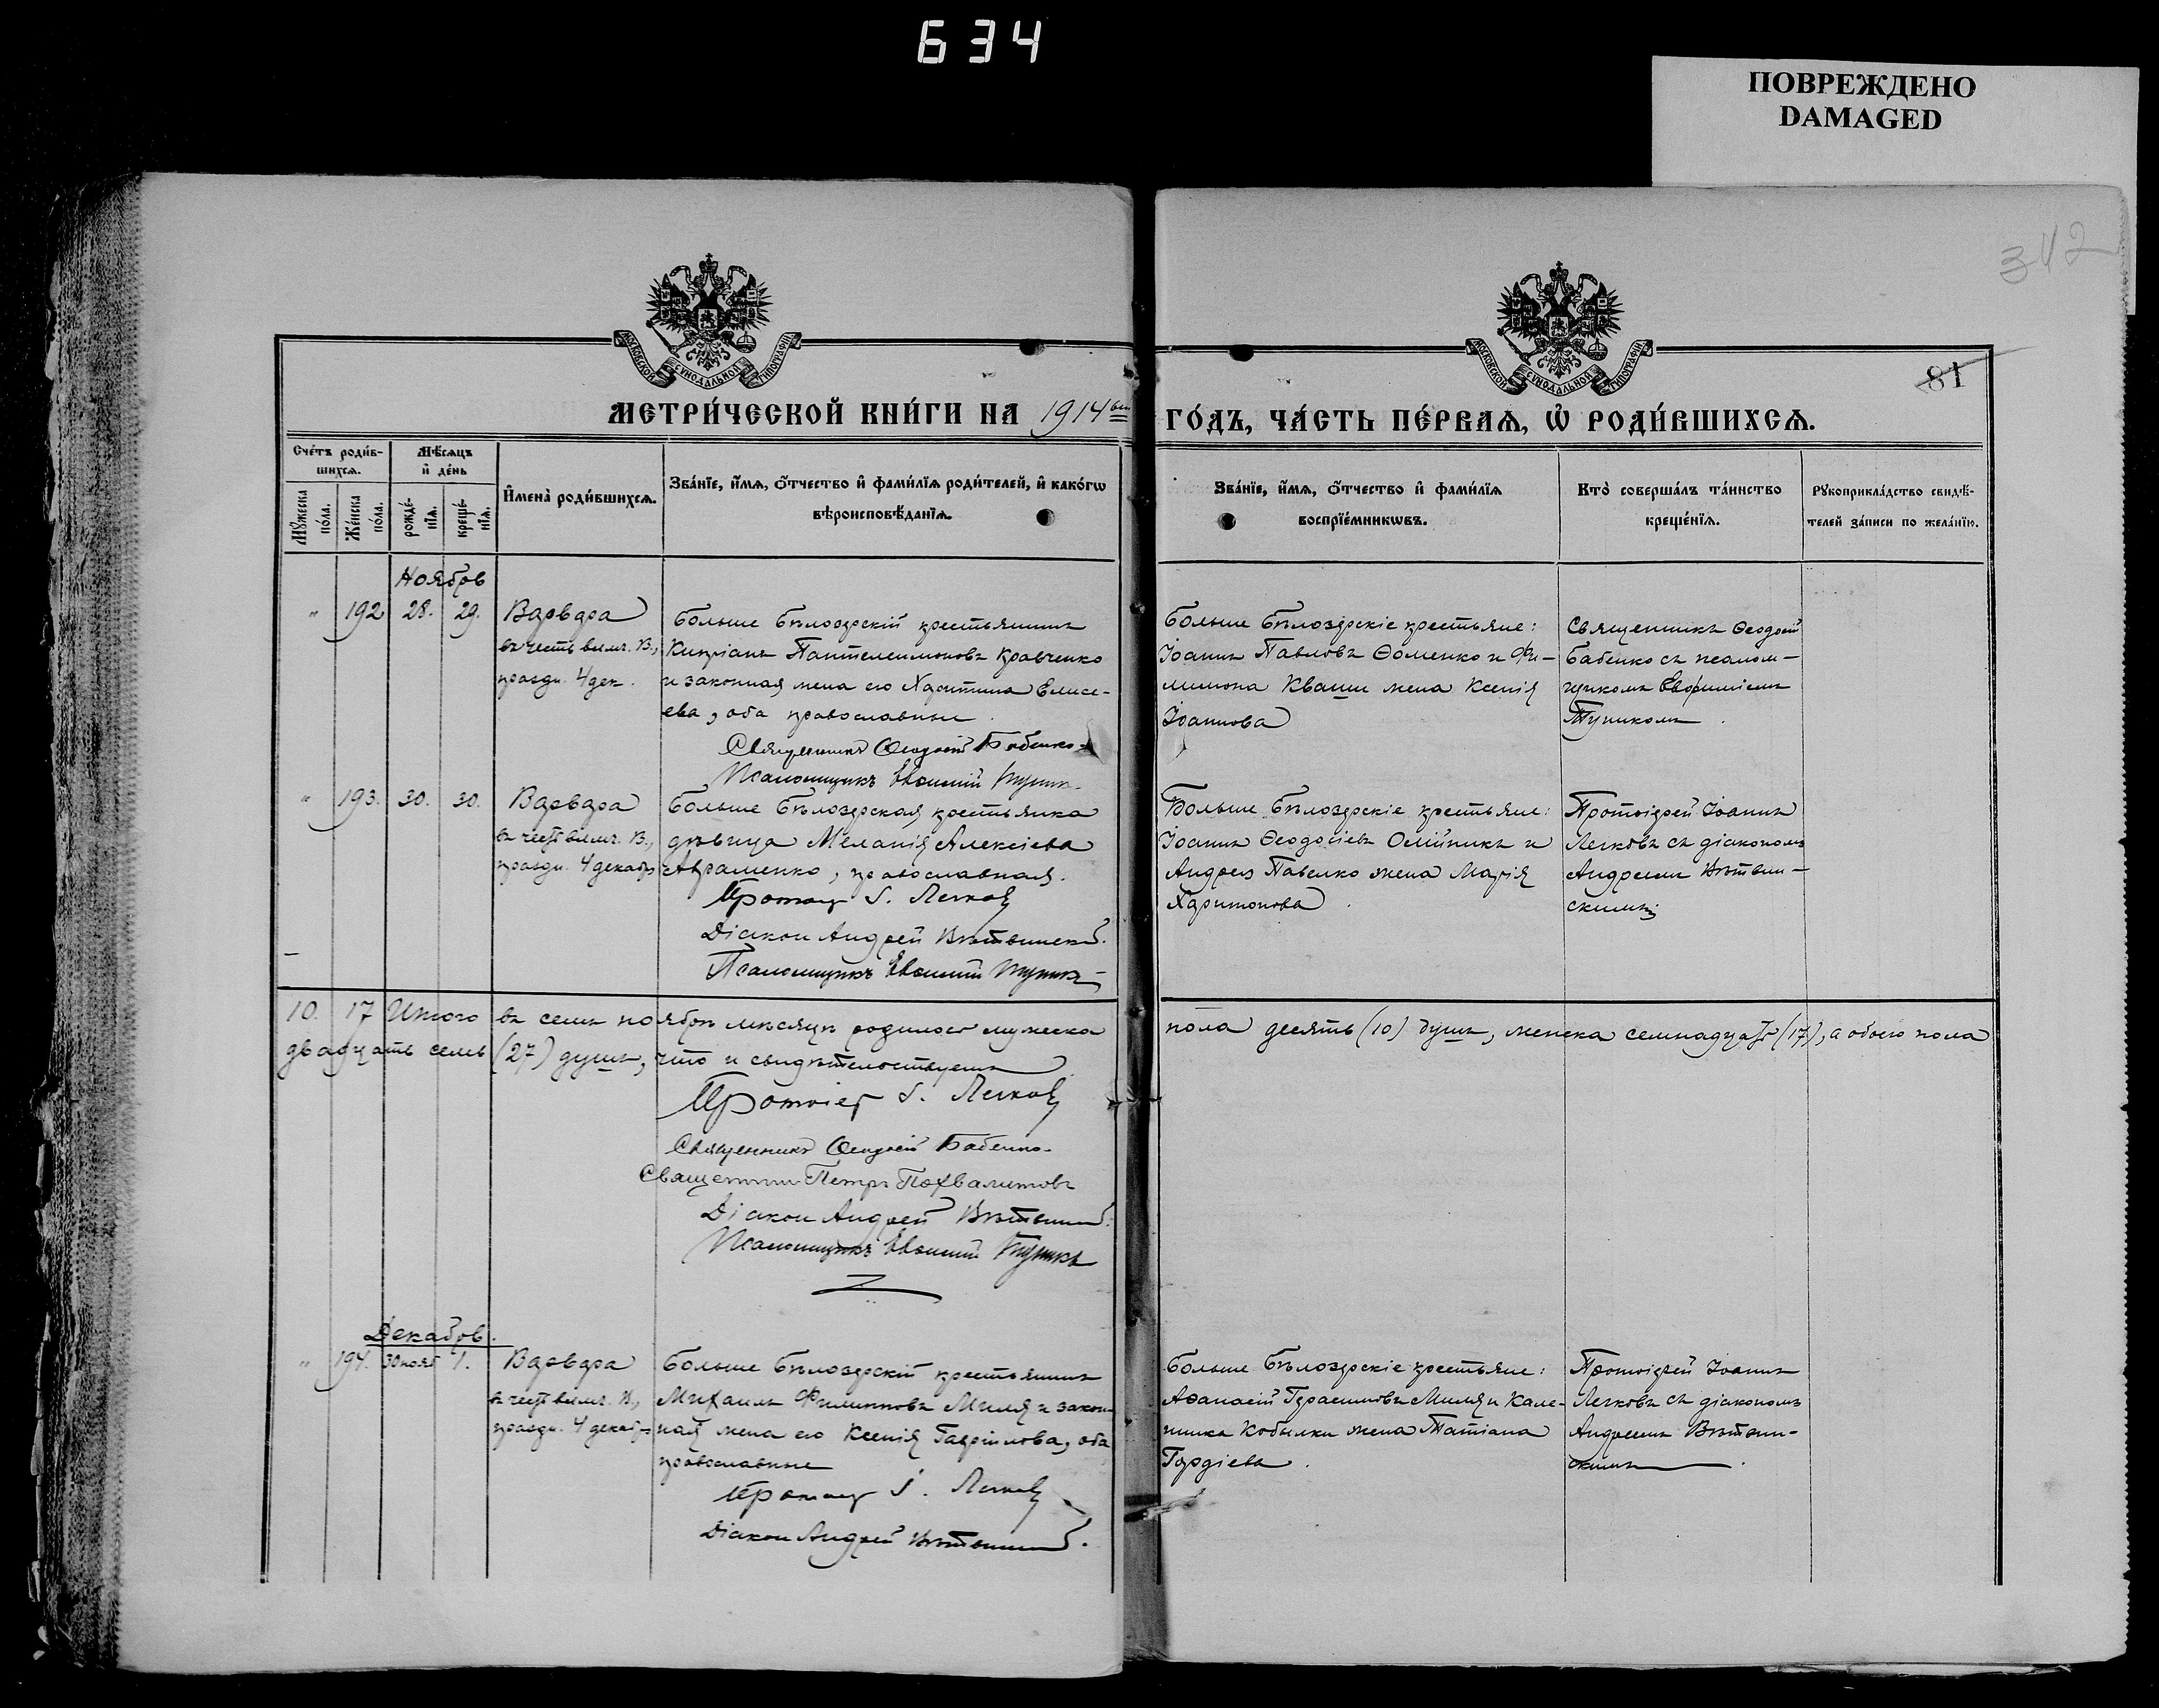 634
ПОВРЕЖДЕНО
DAMAGED
342
81
МОСКОВСКОЙ СѴНОДАЛЬНОЙ ТИПОГРАФІИ
МОСКОВСКОЙ СѴНОДАЛЬНОЙ ТИПОГРАФІИ
МЕТРИ́ЧЕСКОЙ КНИ́ГИ НА 1914
ГО́ДЪ, ЧА́СТЬ ПЕ́РВАѦ, Ѡ҆ РОДИ́ВШИХСѦ.
Сче́тъ роди́в-
шихсѧ.
Мѣ́сѧцъ
и҆ де́нь
Мꙋ́жеска по́ла.
Же́нска по́ла.
рожде́-
нїѧ.
креще́-
нїѧ.
И҆мена̀ роди́вшихсѧ.
Зва́нїе, и҆́мѧ, ѻ҆́тчество и҆ фами́лїѧ роди́телей, и҆ како́гѡ
вѣроисповѣ́данїѧ.
Зва́нїе, и҆́мѧ, ѻ҆́тчество и҆ фами́лїѧ
воспрїе́мникѡвъ.
Кто̀ соверша́лъ та́инство
креще́нїѧ.
Рꙋкоприкла́дство свидѣ́-
телей за́писи по жела́нїю.
Ноябрь
" 192 28. 29. Варвара
въ честь велмч. В.,
праздн. 4 дек.
Больше Бѣлозерскій крестьянинъ
Кипріанъ Пантелеимоновъ Кравченко
и законная жена его Харитина Елисе-
ева, оба православные
Священникъ Ѳеодосій Бабенко
Псаломщикъ Евѳимій Тупикъ
Больше Бѣлозерскіе крестьяне:
Іоаннъ Павловъ Ѳоменко и Фи-
лимона Кваши жена Ксенія
Іоаннова
Священникъ Ѳеодосій
Бабенко съ псалом-
щикомъ Евфиміемъ
Тупикомъ.
" 193. 30. 30. Варвара
въ честь велмч. В.,
праздн. 4 декабр
Больше Бѣлозерская крестьянка
дѣвица Меланія Алексіева
Авраменко, православная.
Протоіер І. Легковъ
Діаконъ Андрей Вѣтвинскій.
Псаломщикъ Евѳимій Тупикъ
Больше Бѣлозерскіе крестьяне:
Іоаннъ Ѳеодосіевъ Олійникъ и
Андрея Павелко жена Марія
Харитонова.
Протоіерей Іоаннъ
Легковъ съ діакономъ
Андреемъ Вѣтвин-
скимъ
10. 17 Итого въ семъ ноябрѣ мѣсяцѣ родилось мужеска
пола десять (10) душъ, женска семнадцать (17), а обоего пола
двадцать семь (27) душъ, что и свидѣтельствуемъ
Протоіер І. Легковъ
Священникъ Ѳеодосій Бабенко.
Священникъ Петръ Похвалитовъ
Діаконъ Андрей Вѣтвинскій.
Псаломщикъ Евѳимій Тупикъ
Декабрь.
" 194. 30 нояб 1. Варвара
въ честь велмч. В.,
праздн. 4 декабр
Больше Бѣлозерскій крестьянинъ
Михаилъ Филипповъ Миляй и закон-
ная жена его Ксенія Гавріилова, оба
православные
Протоіер І. Легковъ
Діаконъ Андрей Вѣтвинскій.
Больше Бѣлозерскіе крестьяне:
Аѳанасій Герасимовъ Миляй и Кале-
ника Кобылки жена Татіана
Гордіева.
Протоіерей Іоаннъ
Легковъ съ діакономъ
Андреемъ Вѣтвин-
скимъ.